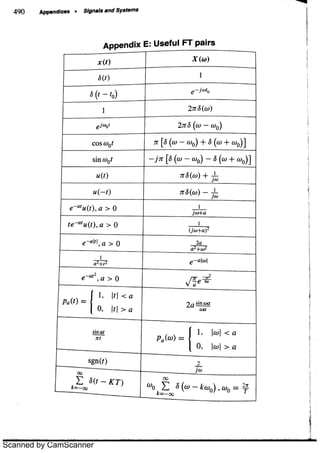 490 Appendices • Signals and Systems
Appendix E: Useful FT pairs
x(t) X(ω)
δ(t) 1
δ(t − t₀) e^{−jωt₀}
1 2πδ(ω)
e^{jω₀t} 2πδ(ω − ω₀)
cos ω₀t π[δ(ω − ω₀) + δ(ω + ω₀)]
sin ω₀t −jπ[δ(ω − ω₀) − δ(ω + ω₀)]
u(t) πδ(ω) + 1/jω
u(−t) πδ(ω) − 1/jω
e^{−at}u(t), a > 0 1/(jω+a)
te^{−at}u(t), a > 0 1/(jω+a)²
e^{−a|t|}, a > 0 2a/(a²+ω²)
1/(a²+t²) e^{−a|ω|}
e^{−at²}, a > 0 √(π/a) e^{−ω²/4a}
pₐ(t) = { 1, |t| < a 2a sin ωa/ωa
0, |t| > a
sin at/πt pₐ(ω) = { 1, |ω| < a
0, |ω| > a
sgn(t) 2/jω
∑_{k=−∞}^{∞} δ(t − KT) ω₀ ∑_{k=−∞}^{∞} δ(ω − kω₀), ω₀ = 2π/T
Scanned by CamScanner